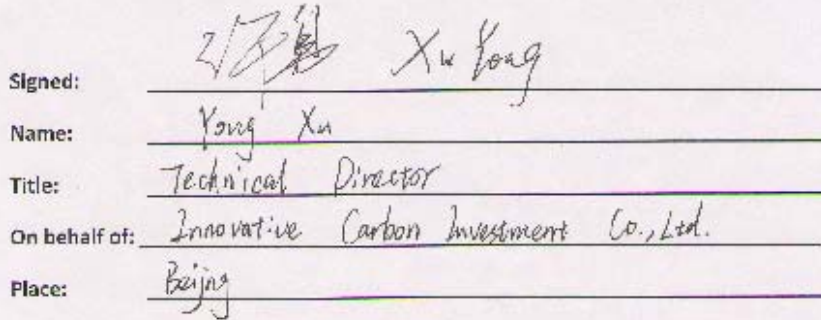 Signed: Xu Yong
Name: Yong Xu
Title: Technical Director
On behalf of: Innovative Carbon Investment Co., Ltd.
Place: Beijing